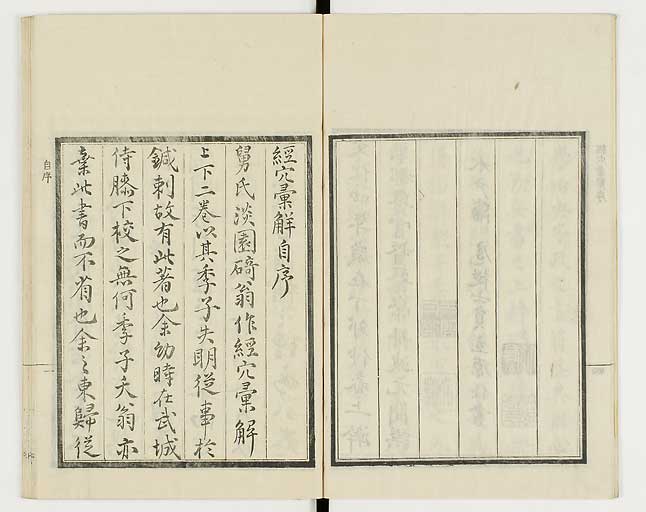 經穴彙解自序
舅氏淡園﨑翁作經穴彙解
上下二卷以其季子失明從事於
鍼刺故有此著也余幼時在武城
侍膝下校之無何季子夭翁亦
棄此書而不省也余之東歸從
自序